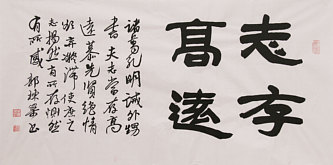 志存
高遠
諸葛孔明誡外甥
書夫志當存高
遠慕先賢絕情
欲棄凝滯使庶之
志揭然有所存惻然
有所感